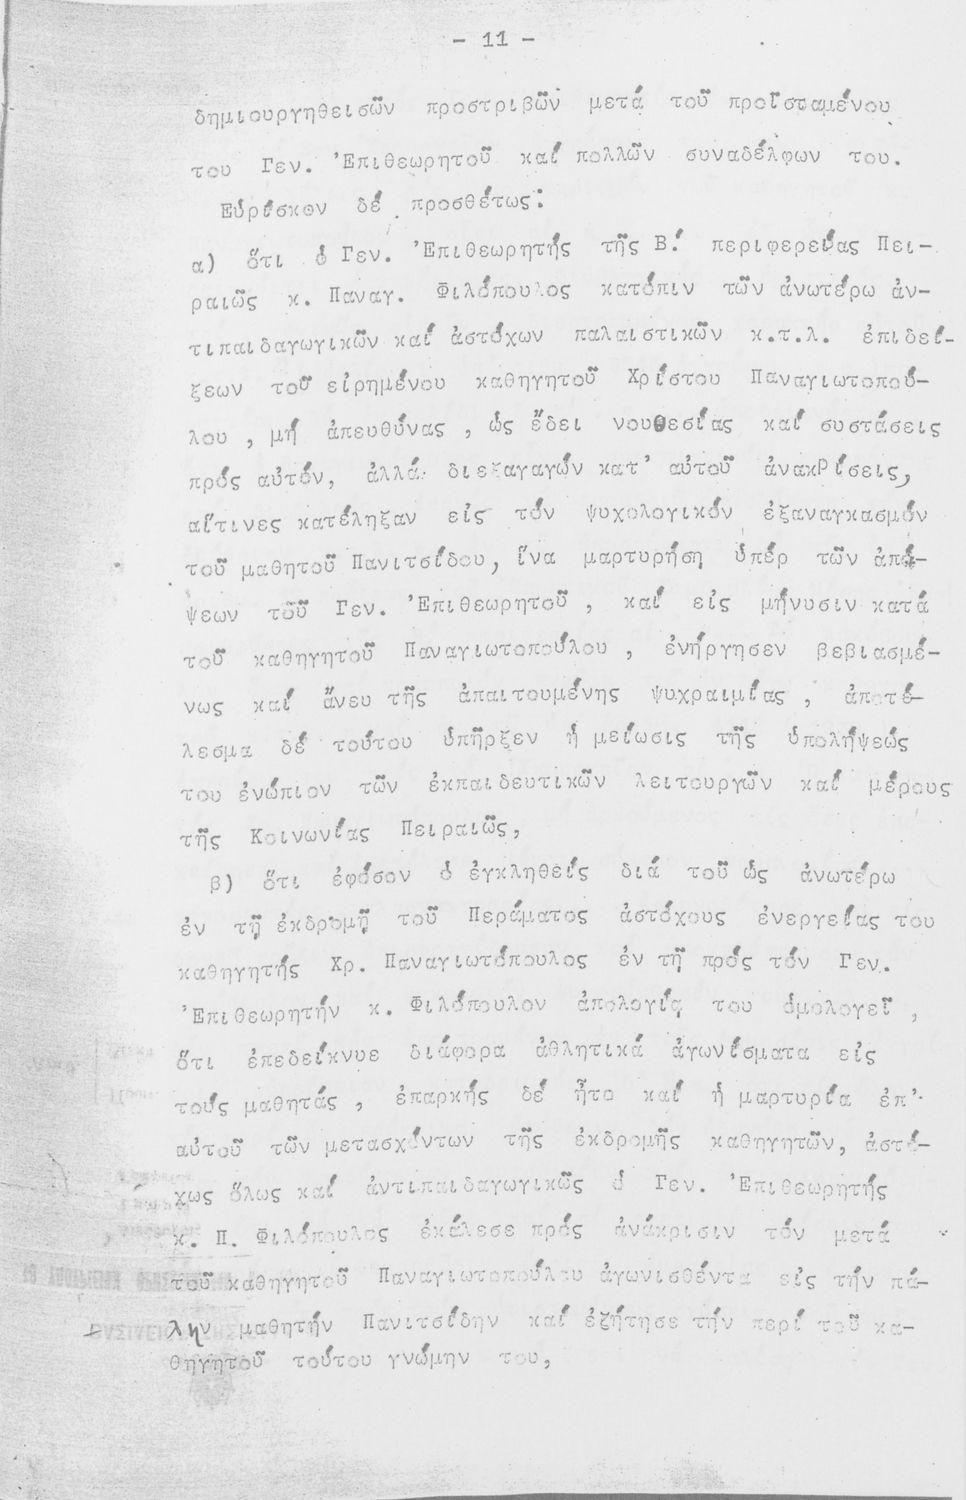 - 11 -
δημιουργηθεισῶν προστριβῶν μετά τοῦ προϊσταμένου
του Γεν. Ἐπιθεωρητοῦ καί πολλῶν συναδέλφων του.
Εὑρίσκον δέ προσθέτως:
α) ὅτι ὁ Γεν. Ἐπιθεωρητής τῆς Β΄ περιφερείας Πει-
ραιῶς κ. Παναγ. Φιλόπουλος κατόπιν τῶν ἀνωτέρω ἀν-
τιπαιδαγωγικῶν καί ἀστόχων παλαιστικῶν κ.τ.λ. ἐπιδεί-
ξεων τοῦ εἰρημένου καθηγητοῦ Χρίστου Παναγιωτοπού-
λου , μή ἀπευθύνας , ὡς ἔδει νουθεσίας καί συστάσεις
πρός αὐτόν, ἀλλά διεξαγαγών κατ' αὐτοῦ ἀνακρίσεις,
αἵτινες κατέληξαν εἰς τόν ψυχολογικόν ἐξαναγκασμόν
τοῦ μαθητοῦ Πανιτσίδου, ἵνα μαρτυρήση ὑπέρ τῶν ἀπό-
ψεων τοῦ Γεν. Ἐπιθεωρητοῦ , καί εἰς μήνυσιν κατά
τοῦ καθηγητοῦ Παναγιωτοπούλου , ἐνήργησεν βεβιασμέ-
νως καί ἄνευ τῆς ἀπαιτουμένης ψυχραιμίας , ἀποτέ-
λεσμα δέ τούτου ὑπῆρξεν ἡ μείωσις τῆς ὑπολήψεώς
του ἐνώπιον τῶν ἐκπαιδευτικῶν λειτουργῶν καί μέρους
τῆς Κοινωνίας Πειραιῶς,
β) ὅτι ἐφόσον ὁ ἐγκληθείς διά τοῦ ὡς ἀνωτέρω
ἐν τῇ ἐκδρομῇ τοῦ Περάματος ἀστόχους ἐνεργείας του
καθηγητής Χρ. Παναγιωτόπουλος ἐν τῇ πρός τόν Γεν.
Ἐπιθεωρητήν κ. Φιλόπουλον ἀπολογίᾳ του ὁμολογεῖ ,
ὅτι ἐπεδείκνυε διάφορα ἀθλητικά ἀγωνίσματα εἰς
τούς μαθητάς , ἐπαρκής δέ ἦτο καί ἡ μαρτυρία ἐπ'
αὐτοῦ τῶν μετασχόντων τῆς ἐκδρομῆς καθηγητῶν, ἀστό-
χως ὅλως καί ἀντιπαιδαγωγικῶς ὁ Γεν. Ἐπιθεωρητής
κ. Π. Φιλόπουλος ἐκάλεσε πρός ἀνάκρισιν τόν μετά
τοῦ καθηγητοῦ Παναγιωτοπούλου ἀγωνισθέντα εἰς τήν πά-
λην μαθητήν Πανιτσίδην καί ἐζήτησε τήν περί τοῦ κα-
θηγητοῦ τούτου γνώμην του,